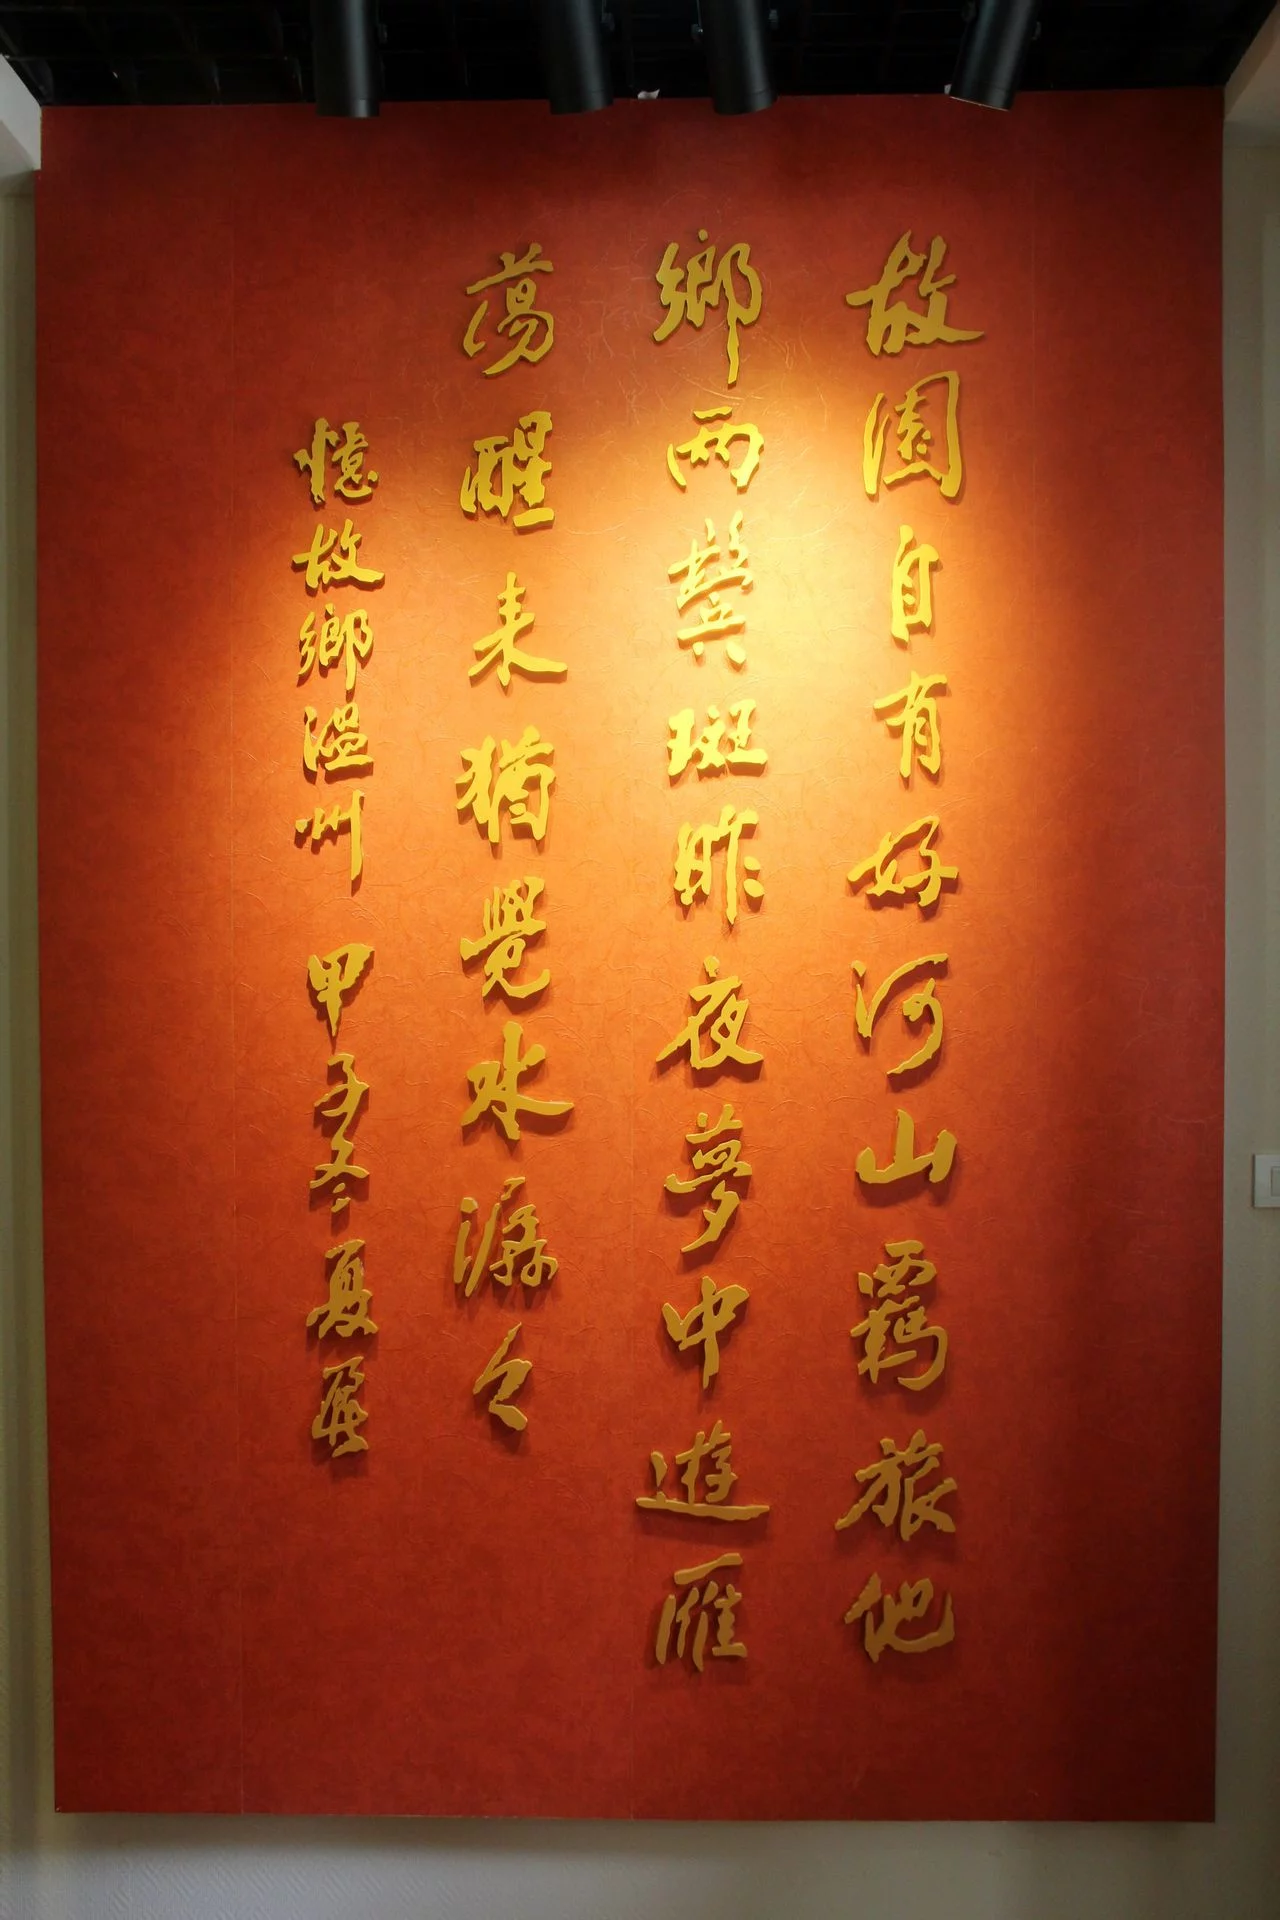 故園自有好河山羈旅他
鄉兩鬢斑昨夜夢中遊雁
蕩醒來猶覺水潺々
憶故鄉溫州 甲子冬夏鼐